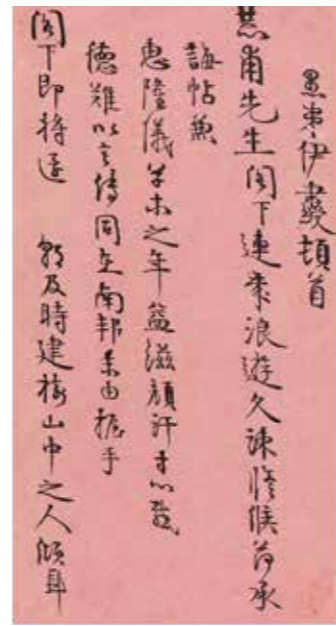 愚弟伊夔頓首
慧甫先生閣下連乘浪遊久疎賤候荷承
誨帖兼
惠隆儀草木之年益滋顏汗寸心載
德難以言傳同在南邦未由握手
閣下即將還 朝及時建樹山中之人傾耳